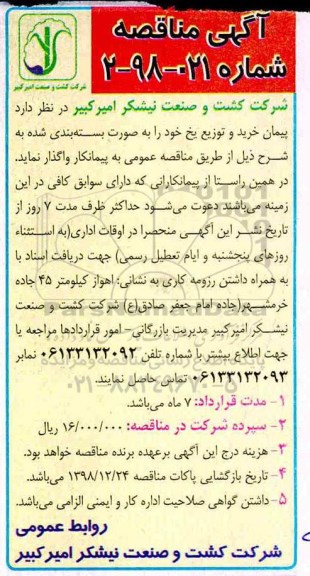 آگهی مناقصه
شماره ۰۲۱-۹۸-۲
شرکت کشت و صنعت نیشکر امیرکبیر
شرکت کشت و صنعت نیشکر امیرکبیر در نظر دارد
پیمان خرید و توزیع یخ خود را به صورت بسته‌بندی شده به
شرح ذیل از طریق مناقصه عمومی به پیمانکار واگذار نماید.
در همین راستا از پیمانکارانی که دارای سوابق کافی در این
زمینه می‌باشند دعوت می‌شود حداکثر ظرف مدت ۷ روز از
تاریخ نشر این آگهی منحصرا در اوقات اداری(به استثناء
روزهای پنجشنبه و ایام تعطیل رسمی) جهت دریافت اسناد با
به همراه داشتن رزومه کاری به نشانی: اهواز کیلومتر ۴۵ جاده
خرمشهر(جاده امام جعفر صادق(ع) شرکت کشت و صنعت
نیشکر امیرکبیر مدیریت بازرگانی- امور قراردادها مراجعه یا
جهت اطلاع بیشتر با شماره تلفن ۰۶۱۳۳۱۳۲۰۹۲ نمابر
۰۶۱۳۳۱۳۲۰۹۳ تماس حاصل نمایند.
۱- مدت قرارداد: ۷ ماه می‌باشد.
۲- سپرده شرکت در مناقصه: ۱۶/۰۰۰/۰۰۰ ریال
۳- هزینه درج این آگهی برعهده برنده مناقصه خواهد بود.
۴- تاریخ بازگشایی پاکات مناقصه ۱۳۹۸/۱۲/۲۴ می‌باشد.
۵- داشتن گواهی صلاحیت اداره کار و ایمنی الزامی می‌باشد.
روابط عمومی
شرکت کشت و صنعت نیشکر امیرکبیر